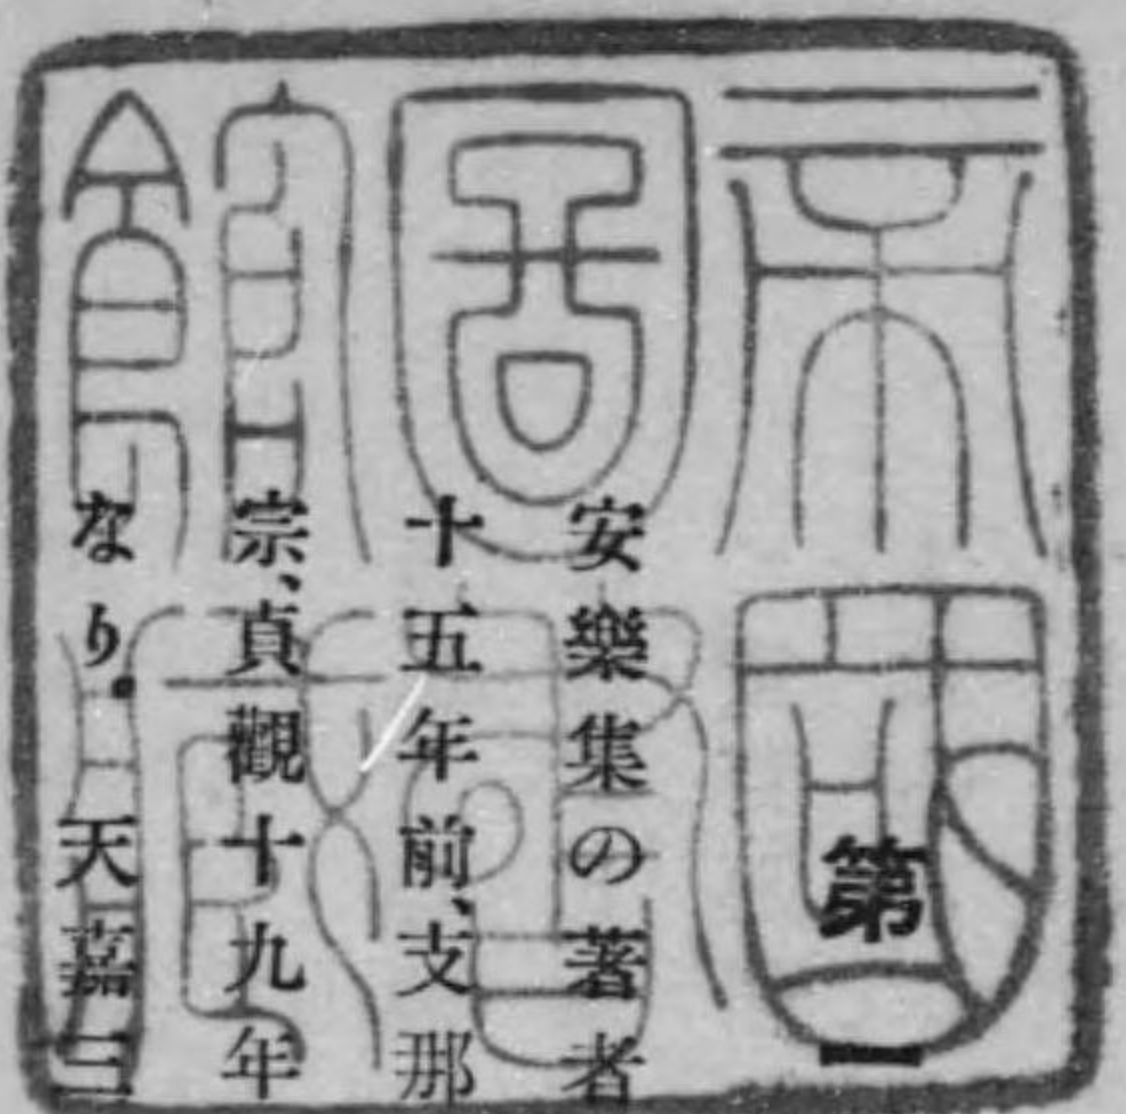 帝國
圖書
館藏
第一
安樂集の著者
十五年前、支那
宗、貞觀十九年
なり．天嘉三